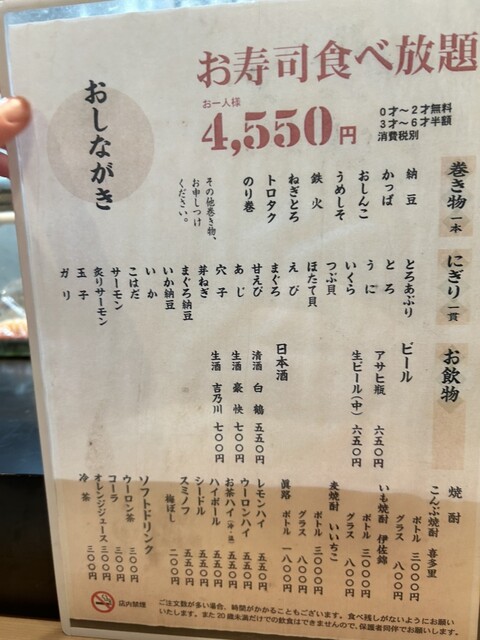 お寿司食べ放題
お一人様
4,550円
0才〜2才無料
3才〜6才半額
消費税別
おしながき
巻き物 一本
納豆
かっぱ
おしんこ
うめしそ
鉄火
ねぎとろ
トロタク
のり巻
その他巻き物、
お申しつけ
ください。
にぎり 一貫
とろあぶり
とろ
うに
いくら
つぶ貝
ほたて貝
えび
まぐろ
甘えび
あじ
穴子
芽ねぎ
まぐろ納豆
いか納豆
いか
こはだ
サーモン
炙りサーモン
玉子
ガリ
お飲物
ビール
アサヒ瓶 六五〇円
生ビール(中) 六五〇円
日本酒
清酒 白鶴 五五〇円
生酒 豪快 七〇〇円
生酒 吉乃川 七〇〇円
焼酎
こんぶ焼酎 喜多里
ボトル 三〇〇〇円
グラス 八〇〇円
いも焼酎 伊佐錦
ボトル 三〇〇〇円
グラス 八〇〇円
麦焼酎 いいちこ
ボトル 三〇〇〇円
グラス 八〇〇円
眞路 ボトル 一八〇〇円
レモンハイ 五五〇円
ウーロンハイ 五五〇円
お茶ハイ 五五〇円
ハイボール 五五〇円
シードル 五五〇円
スミノフ 五五〇円
梅ぼし 二〇〇円
ソフトドリンク
ウーロン茶 三〇〇円
コーラ 三〇〇円
オレンジジュース 三〇〇円
冷茶 三〇〇円
店内禁煙
ご注文数が多い場合、時間がかかることもございます。食べ残しがないようにお願い
いたします。また20歳未満だけでの飲食はできませんので、保護者同伴でお願いします。